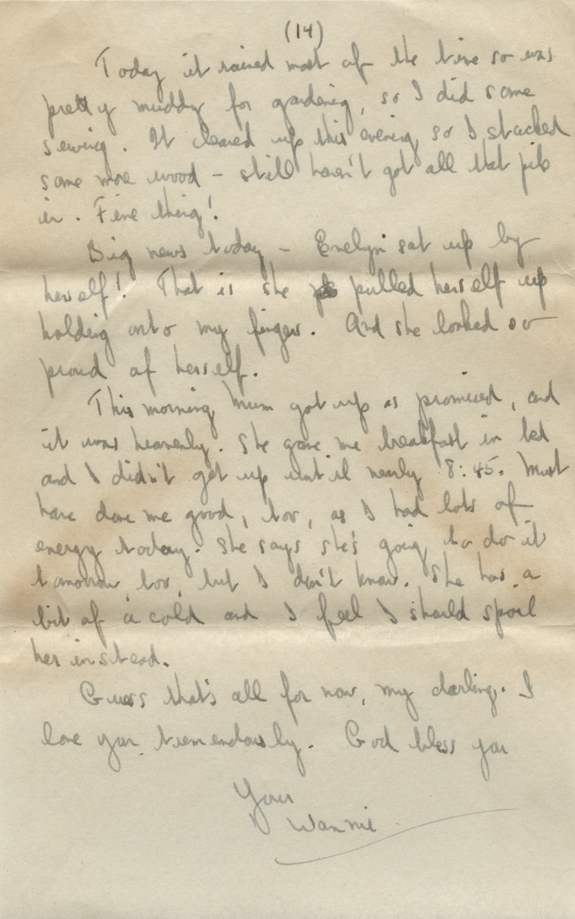 (14)
Today it rained most of the time so was
pretty muddy for gardening, so I did some
sewing. It cleared up this evening so I stacked
some more wood - still haven't got all that pile
in. Fine thing!
Big news today - Evelyn sat up by
herself! That is she pulled herself up
holding onto my fingers. And she looked so
proud of herself.
This morning Mum got up as promised, and
it was heavenly. She gave me breakfast in bed
and I didn't get up until nearly 8:45. Must
have done me good, too, as I had lots of
energy today. She says she's going to do it
tomorrow, too, but I don't know. She has a
bit of a cold and I feel I should spoil
her instead.
Guess that's all for now, my darling. I
love you tremendously. God bless you
Your
Wannie